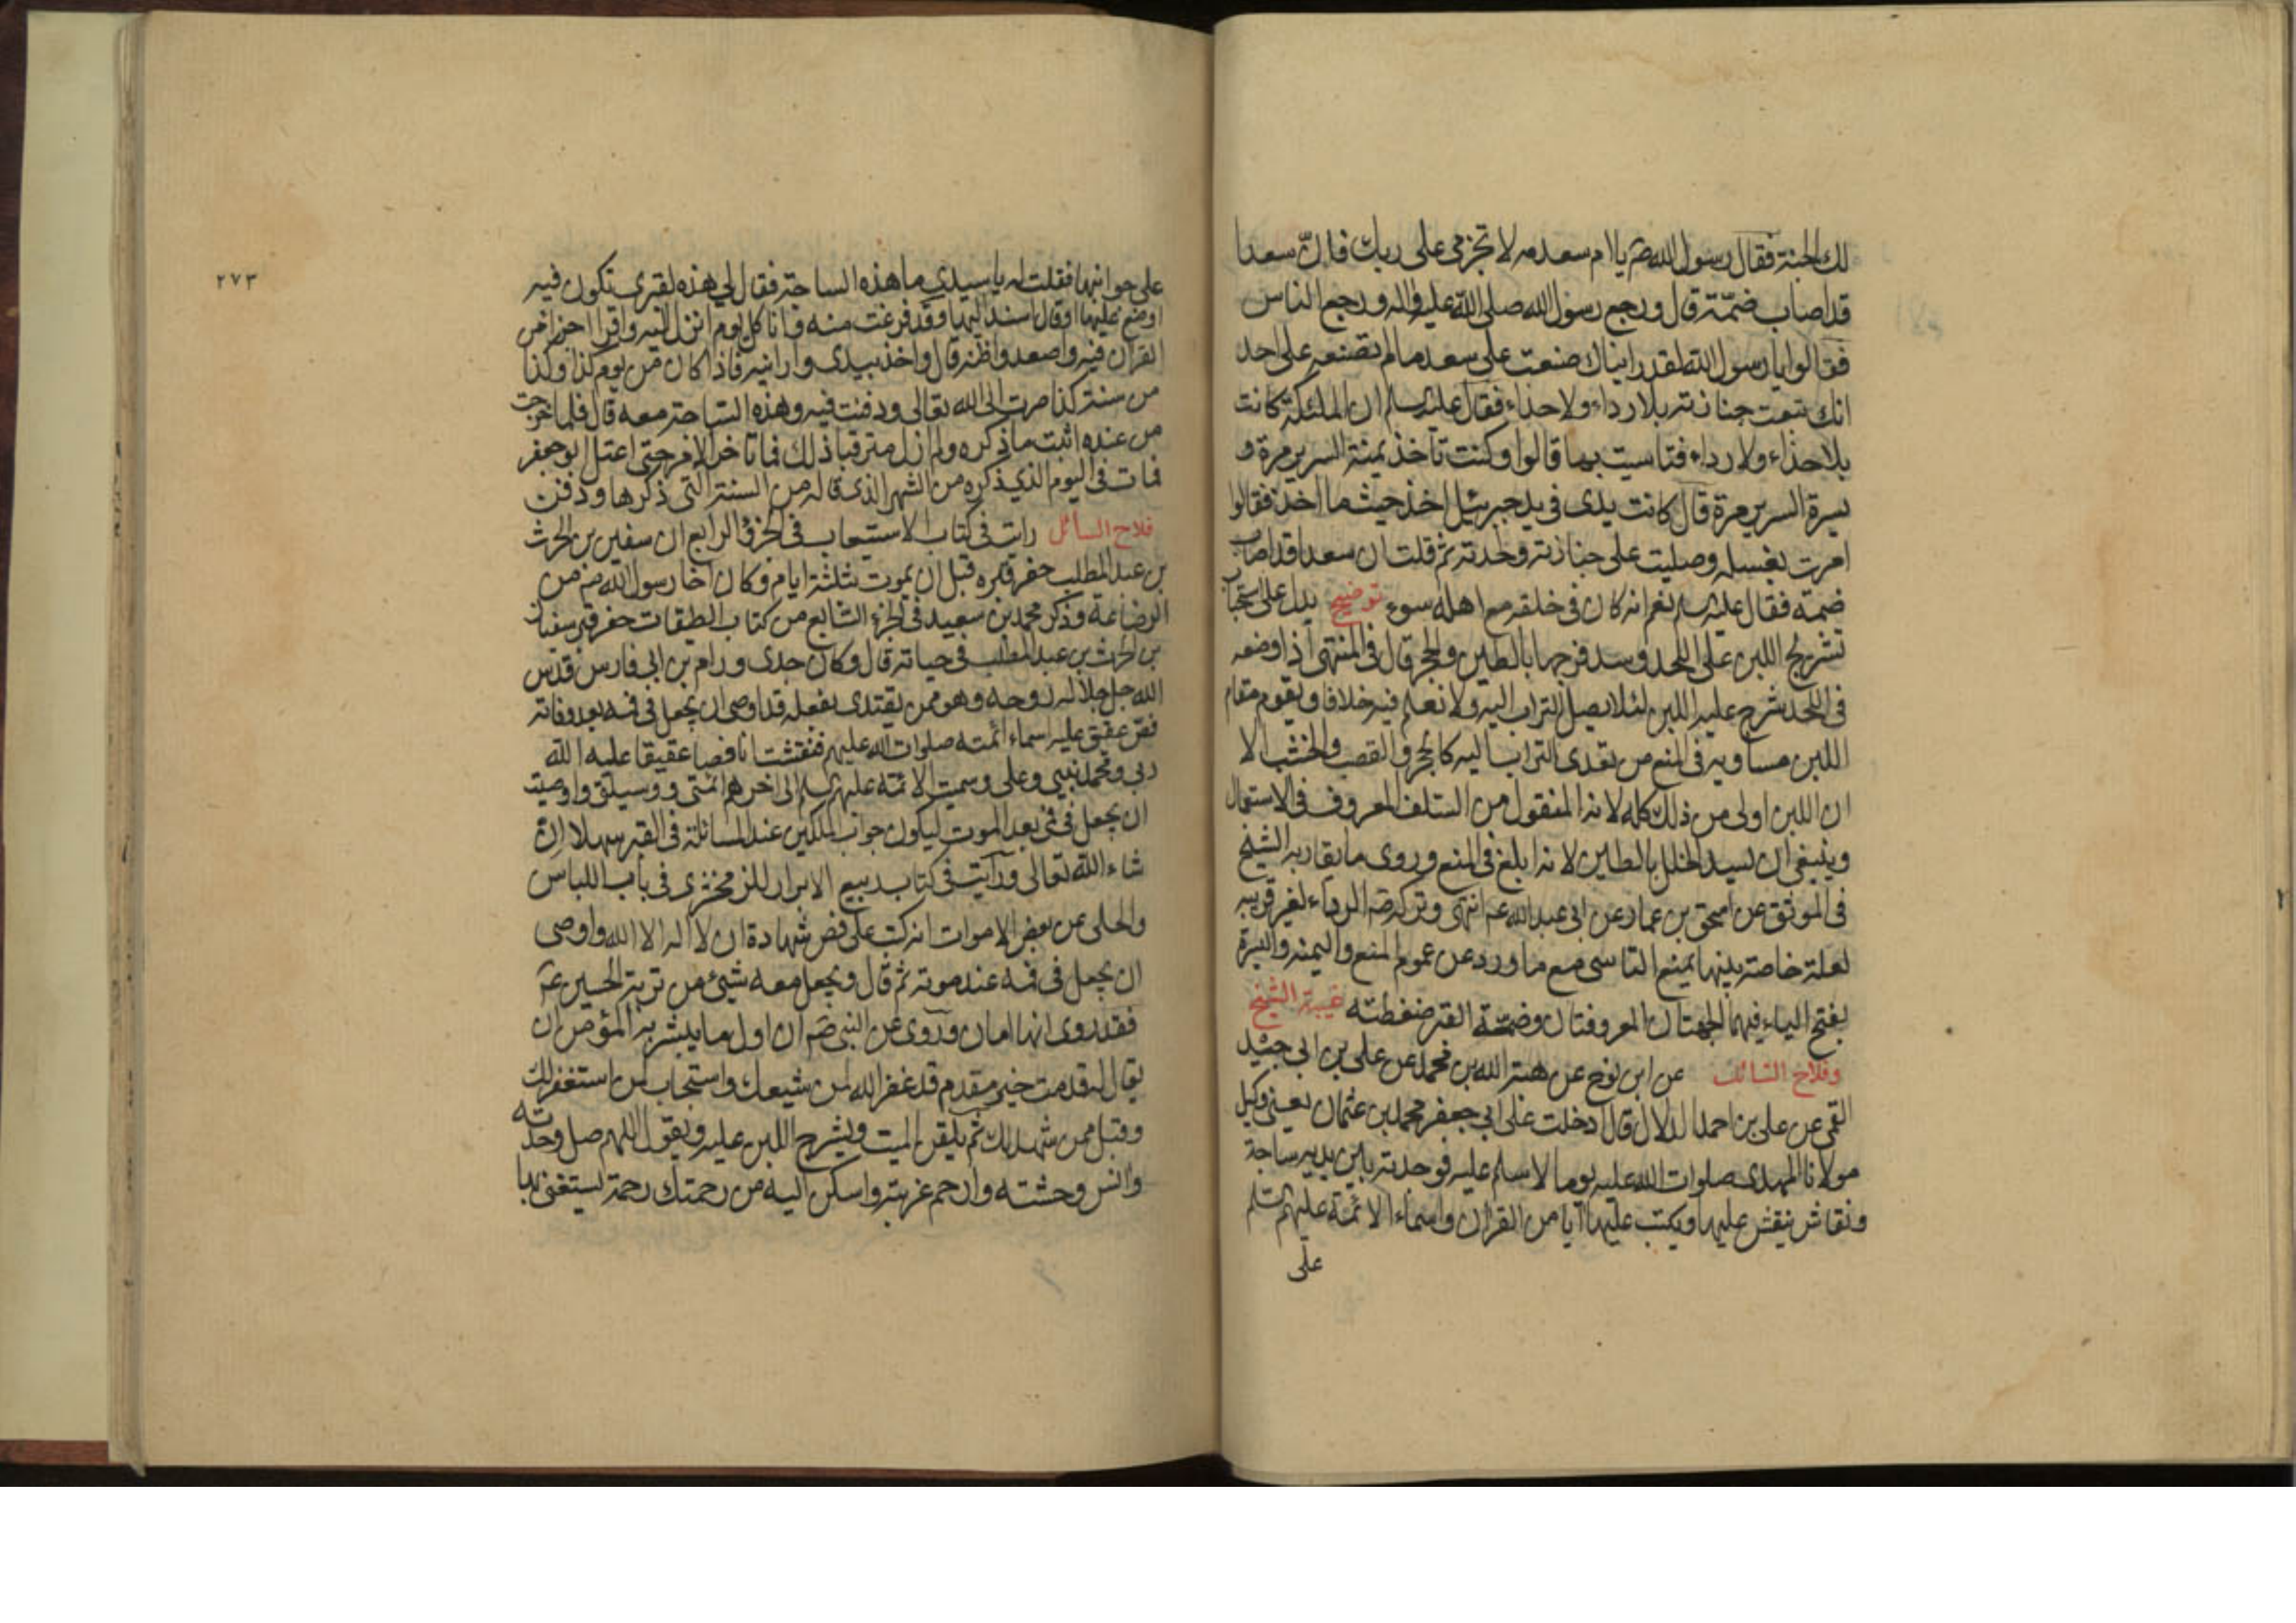 لك الجنة فقال رسول الله صم يا ام سعد مه لا تجزمى على ربك فان سعدا
قد اصاب ضمّة قال ورجع رسول الله صلى الله عليه واله ورجع الناس
فقالوا يا رسول الله لقد رايناك صنعت على سعد ما لم تصنعه على احد
انك تبعت جنازته بلا رداء ولا حذاء فقال عليه السلم ان الملئكة كانت
بلا حذاء ولا رداء فتاسيت بها قالوا وكنت تاخذ يمنة السرير مرة و
يسرة السرير مرة قال كانت يدى فى يد جبرئيل اخذ حيث ما اخذ فقالوا
امرت بغسله وصليت على جنازته ولحدته ثم قلت ان سعدا قد اصاب
ضمة فقال عليه السلم نعم انه كان فى خلقه مع اهله سوء توضيح يدل على استحباب
تشريج اللبن على اللحد وسد فرجها بالطين والحجر قال فى المنتهى اذا وضعه
فى اللحد شرج عليه اللبن لئلا يصل التراب اليه ولا نعلم فيه خلافا ويقوم مقام
اللبن مساويه فى المنع من تعدى التراب اليه كالحجر والقصب والخشب الا
ان اللبن اولى من ذلك كله لانه المنقول من السلف المعروف فى الاستعمال
وينبغى ان يسد الخلل بالطين لانه ابلغ فى المنع وروى ما يقاربه الشيخ
فى الموثق عن اسحق بن عمار عن ابى عبد الله عم انتهى وتركه صم الرداء لغير قريبه
لعلة خاصة بينها يمنع التاسى مع ما ورد عن عموم المنع واليمنه واليسرة
بفتح الياء فيهما الجهتان المعروفتان وضمّة القبر ضغطته غيبة الشيخ
وفلاح السائل عن ابن نوح عن هبة الله بن محمد عن على بن ابى جيد
القمى عن على بن احمد الدلال قال دخلت على ابى جعفر محمد بن عثمان يعنى وكيل
مولانا المهدى صلوات الله عليه يوما لاسلم عليه فوجدته بين يديه ساجة
ونقاش ينقش عليها ويكتب عليها ايا من القران واسماء الائمة عليهم السلم
على
٢٧٣
على جوانبها فقلت له يا سيدي ما هذه الساجة فقال لي هذه لقبرى تكون فيه
اوضع عليها او قال اسند اليها وقد فرغت منه وانا كل يوم انزل اليه واقرا اجزاء من
القران فيه واصعد واظنه قال واخذ بيدى وارانيه فاذا كان من يوم كذا وكذا
من سنة كذا صرت الى الله تعالى ودفنت فيه وهذه الساجة معه قال فلما خرجت
من عنده اثبت ما ذكره ولم ازل مترقبا ذلك فما تاخر الامر حتى اعتل ابو جعفر
فمات فى اليوم الذي ذكره من الشهر الذى قاله من السنة التى ذكرها ودفن
فلاح السائل رايت فى كتاب الاستيعاب فى الجزؤ الرابع ان سفين بن الحرث
بن عبد المطلب حفر قبره قبل ان يموت بثلثة ايام وكان اخا رسول الله صم من
الرضاعة وذكر محمد بن سعيد فى الجزء السابع من كتاب الطبقات حفر قبر سفيان
بن الحرث بن عبد المطلب فى حياته قال وكان جدى ورام بن ابى فارس قدس
الله جل جلاله روحه وهو ممن يقتدى بفعله قد اوصى ان يجعل فى فمه بعد وفاته
فص عقيق عليه اسماء ائمته صلوات الله عليهم فنقشت انا فصا عقيقا عليه الله
ربى ومحمد نبيى وعلى وسميت الائمة عليهم السلم الى اخرهم ائمتى ووسيلتى واوصيت
ان يجعل فى فمى بعد الموت ليكون جواب الملكين عند المسائلة فى القبر سهلا ان
شاء الله تعالى ورايت فى كتاب ربيع الابرار للزمخشرى فى باب اللباس
والحلى عن بعض الاموات انه كتب على فص شهادة ان لا اله الا الله واوصى
ان يجعل فى فمه عند موته ثم قال ويجعل معه شيئ من تربة الحسين عم
فقد روى انها امان وروى عن النبى صم ان اول ما يبشر به المؤمن ان
يقال له قدمت خير مقدم قد غفر الله لمن شيعك واستجاب لمن استغفر لك
وقبل ممن شهد لك ثم يلقن الميت ويشرج اللبن عليه ويقول اللهم صل وحدته
وانس وحشته وارحم غربته واسكن اليه من رحمتك رحمة يستغنى بها